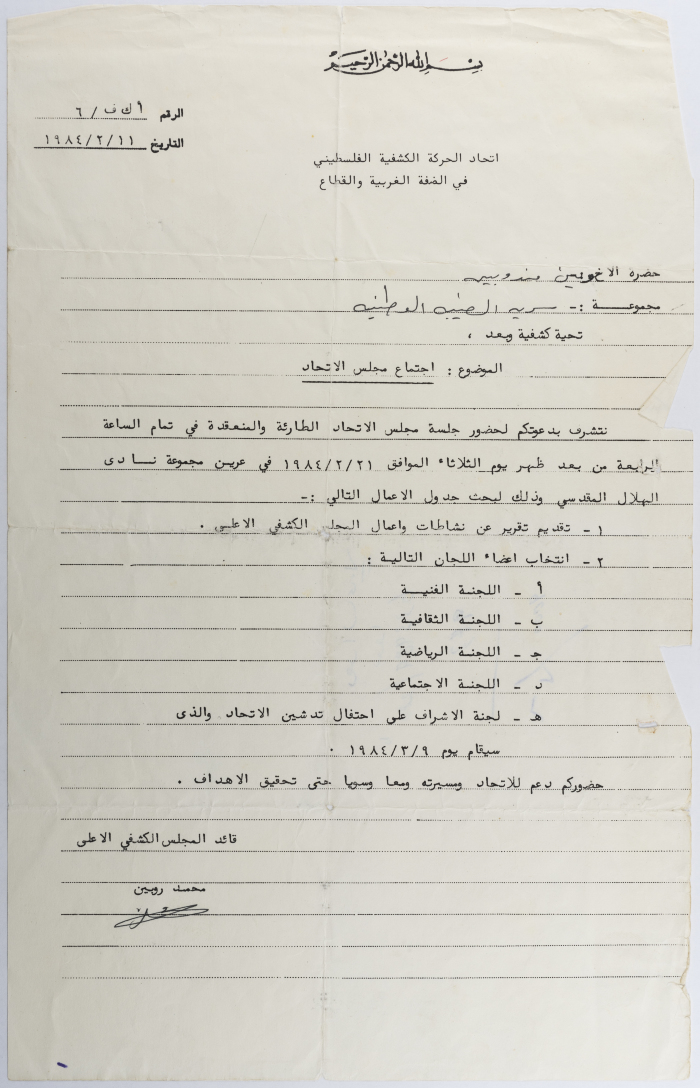 بسم الله الرحمن الرحيم
الرقم أ ك ف / ٦
التاريخ ١٩٨٤/٢/١١
اتحاد الحركة الكشفية الفلسطيني
في الضفة الغربية والقطاع
حضرة الاخوين مندوبي
مجموعة :- سرية الوطنية
تحية كشفية وبعد ،
الموضوع : اجتماع مجلس الاتحاد
نتشرف بدعوتكم لحضور جلسة مجلس الاتحاد الطارئة والمنعقدة في تمام الساعة
الرابعة من بعد ظهر يوم الثلاثاء الموافق ١٩٨٤/٢/٢١ في عرين مجموعة نادى
الهلال المقدسي وذلك لبحث جدول الاعمال التالي :-
١ - تقديم تقرير عن نشاطات واعمال المجلس الكشفي الاعلى .
٢ - انتخاب اعضاء اللجان التالية :
أ - اللجنة الفنية
ب - اللجنة الثقافية
ج - اللجنة الرياضية
د - اللجنة الاجتماعية
هـ - لجنة الاشراف على احتفال تدشين الاتحاد والذى
سيقام يوم ١٩٨٤/٣/٩ .
حضوركم دعم للاتحاد ومسيرته ومعا وسويا حتى تحقيق الاهداف .
قائد المجلس الكشفي الاعلى
محمد روبين